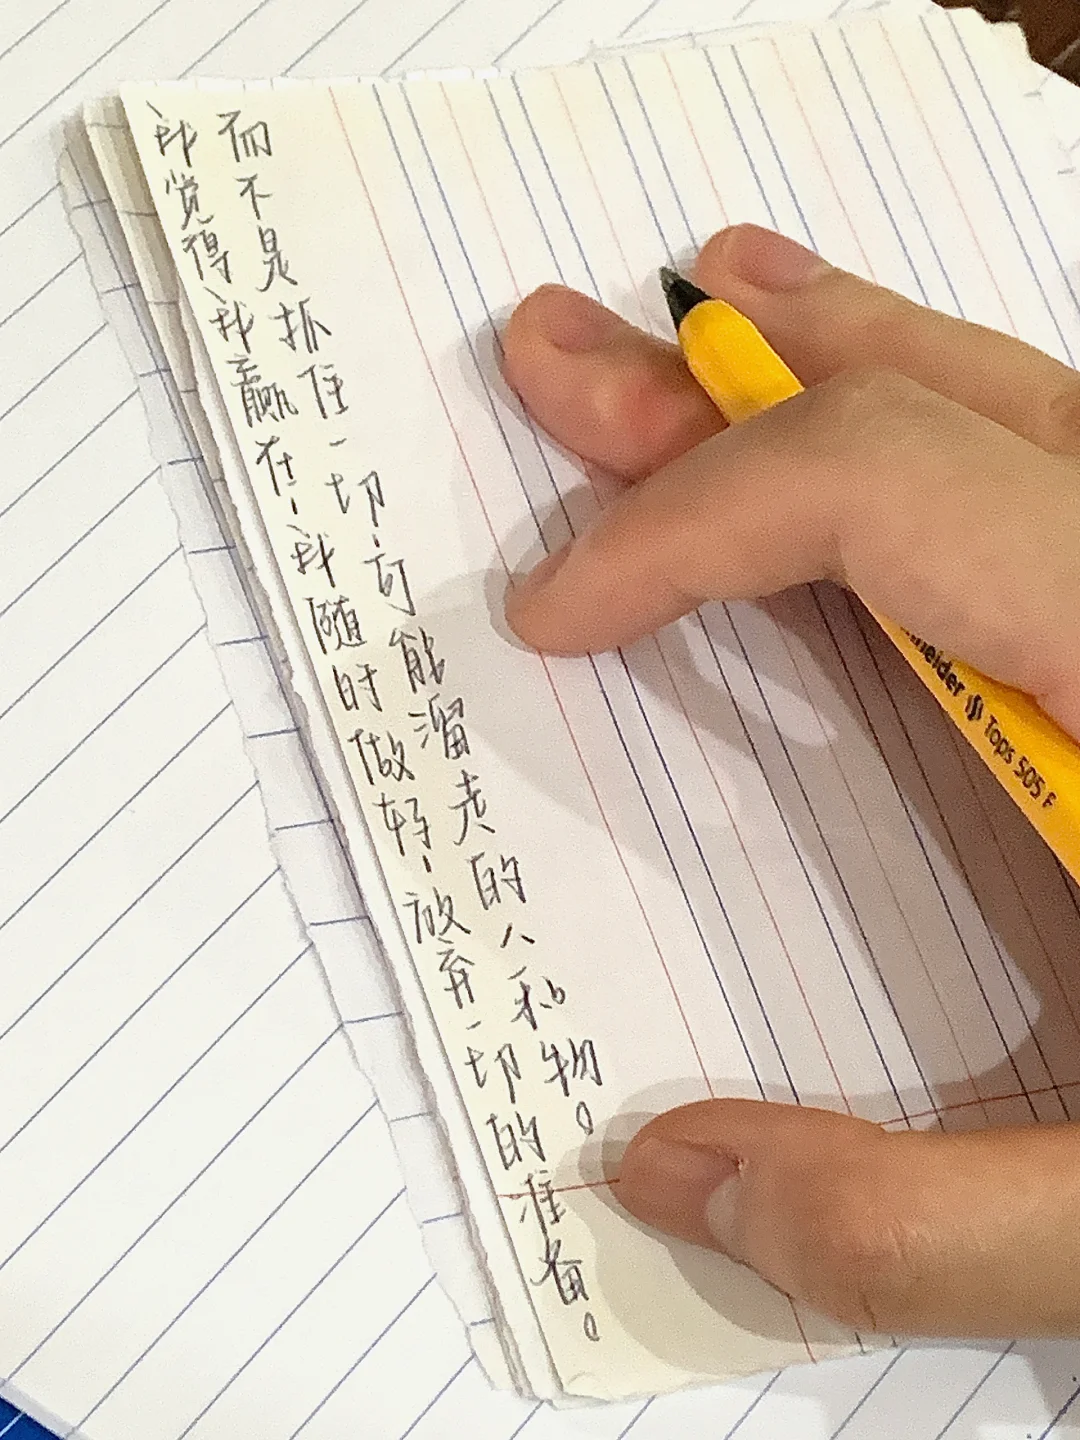 我觉得我赢在，我随时做好，放弃一切的准备。
而不是抓住一切，可能溜走的人和物。
neider Tops 505 F